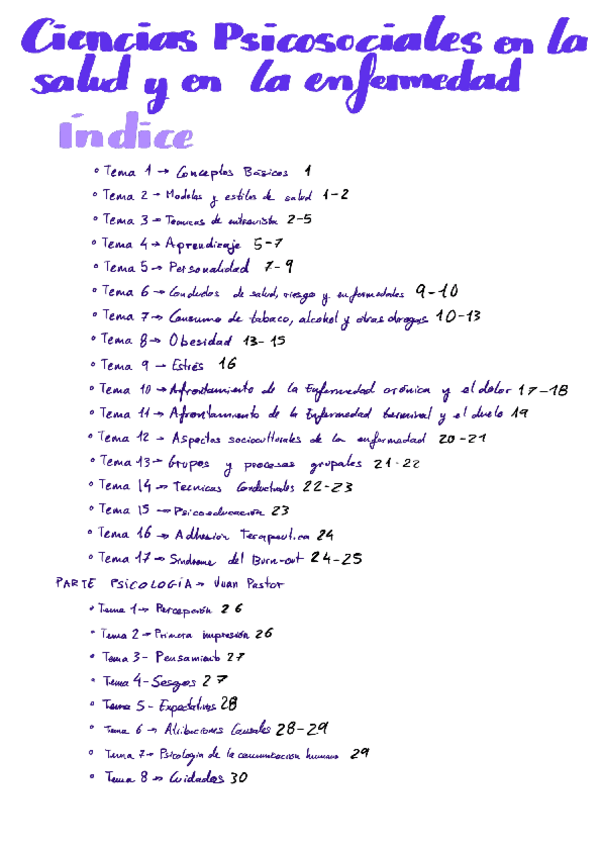 Ciencias Psicosociales en la
salud y en la enfermedad
Índice
° Tema 1 → Conceptos Básicos 1
° Tema 2 → Modelos y estilos de salud 1-2
° Tema 3 → Técnicas de entrevista 2-5
° Tema 4 → Aprendizaje 5-7
° Tema 5 → Personalidad 7-9
° Tema 6 → Conductas de salud, riesgo y enfermedades 9-10
° Tema 7 → Consumo de tabaco, alcohol y otras drogas 10-13
° Tema 8 → Obesidad 13-15
° Tema 9 → Estrés 16
° Tema 10 → Afrontamiento de la Enfermedad crónica y el dolor 17-18
° Tema 11 → Afrontamiento de la Enfermedad terminal y el duelo 19
° Tema 12 → Aspectos socioculturales de la enfermedad 20-21
° Tema 13 → Grupos y procesos grupales 21-22
° Tema 14 → Tecnicas Conductuales 22-23
° Tema 15 → Psicoeducación 23
° Tema 16 → Adhesion Terapeutica 24
° Tema 17 → Sindrome del Burn-out 24-25
PARTE PSICOLOGÍA → Juan Pastor
° Tema 1 → Percepción 26
° Tema 2 → Primera impresión 26
° Tema 3 - Pensamiento 27
° Tema 4 - Sesgos 27
° Tema 5 - Expectativas 28
° Tema 6 → Atribuciones Causales 28-29
° Tema 7 → Psicología de la comunicación humana 29
° Tema 8 → Cuidados 30